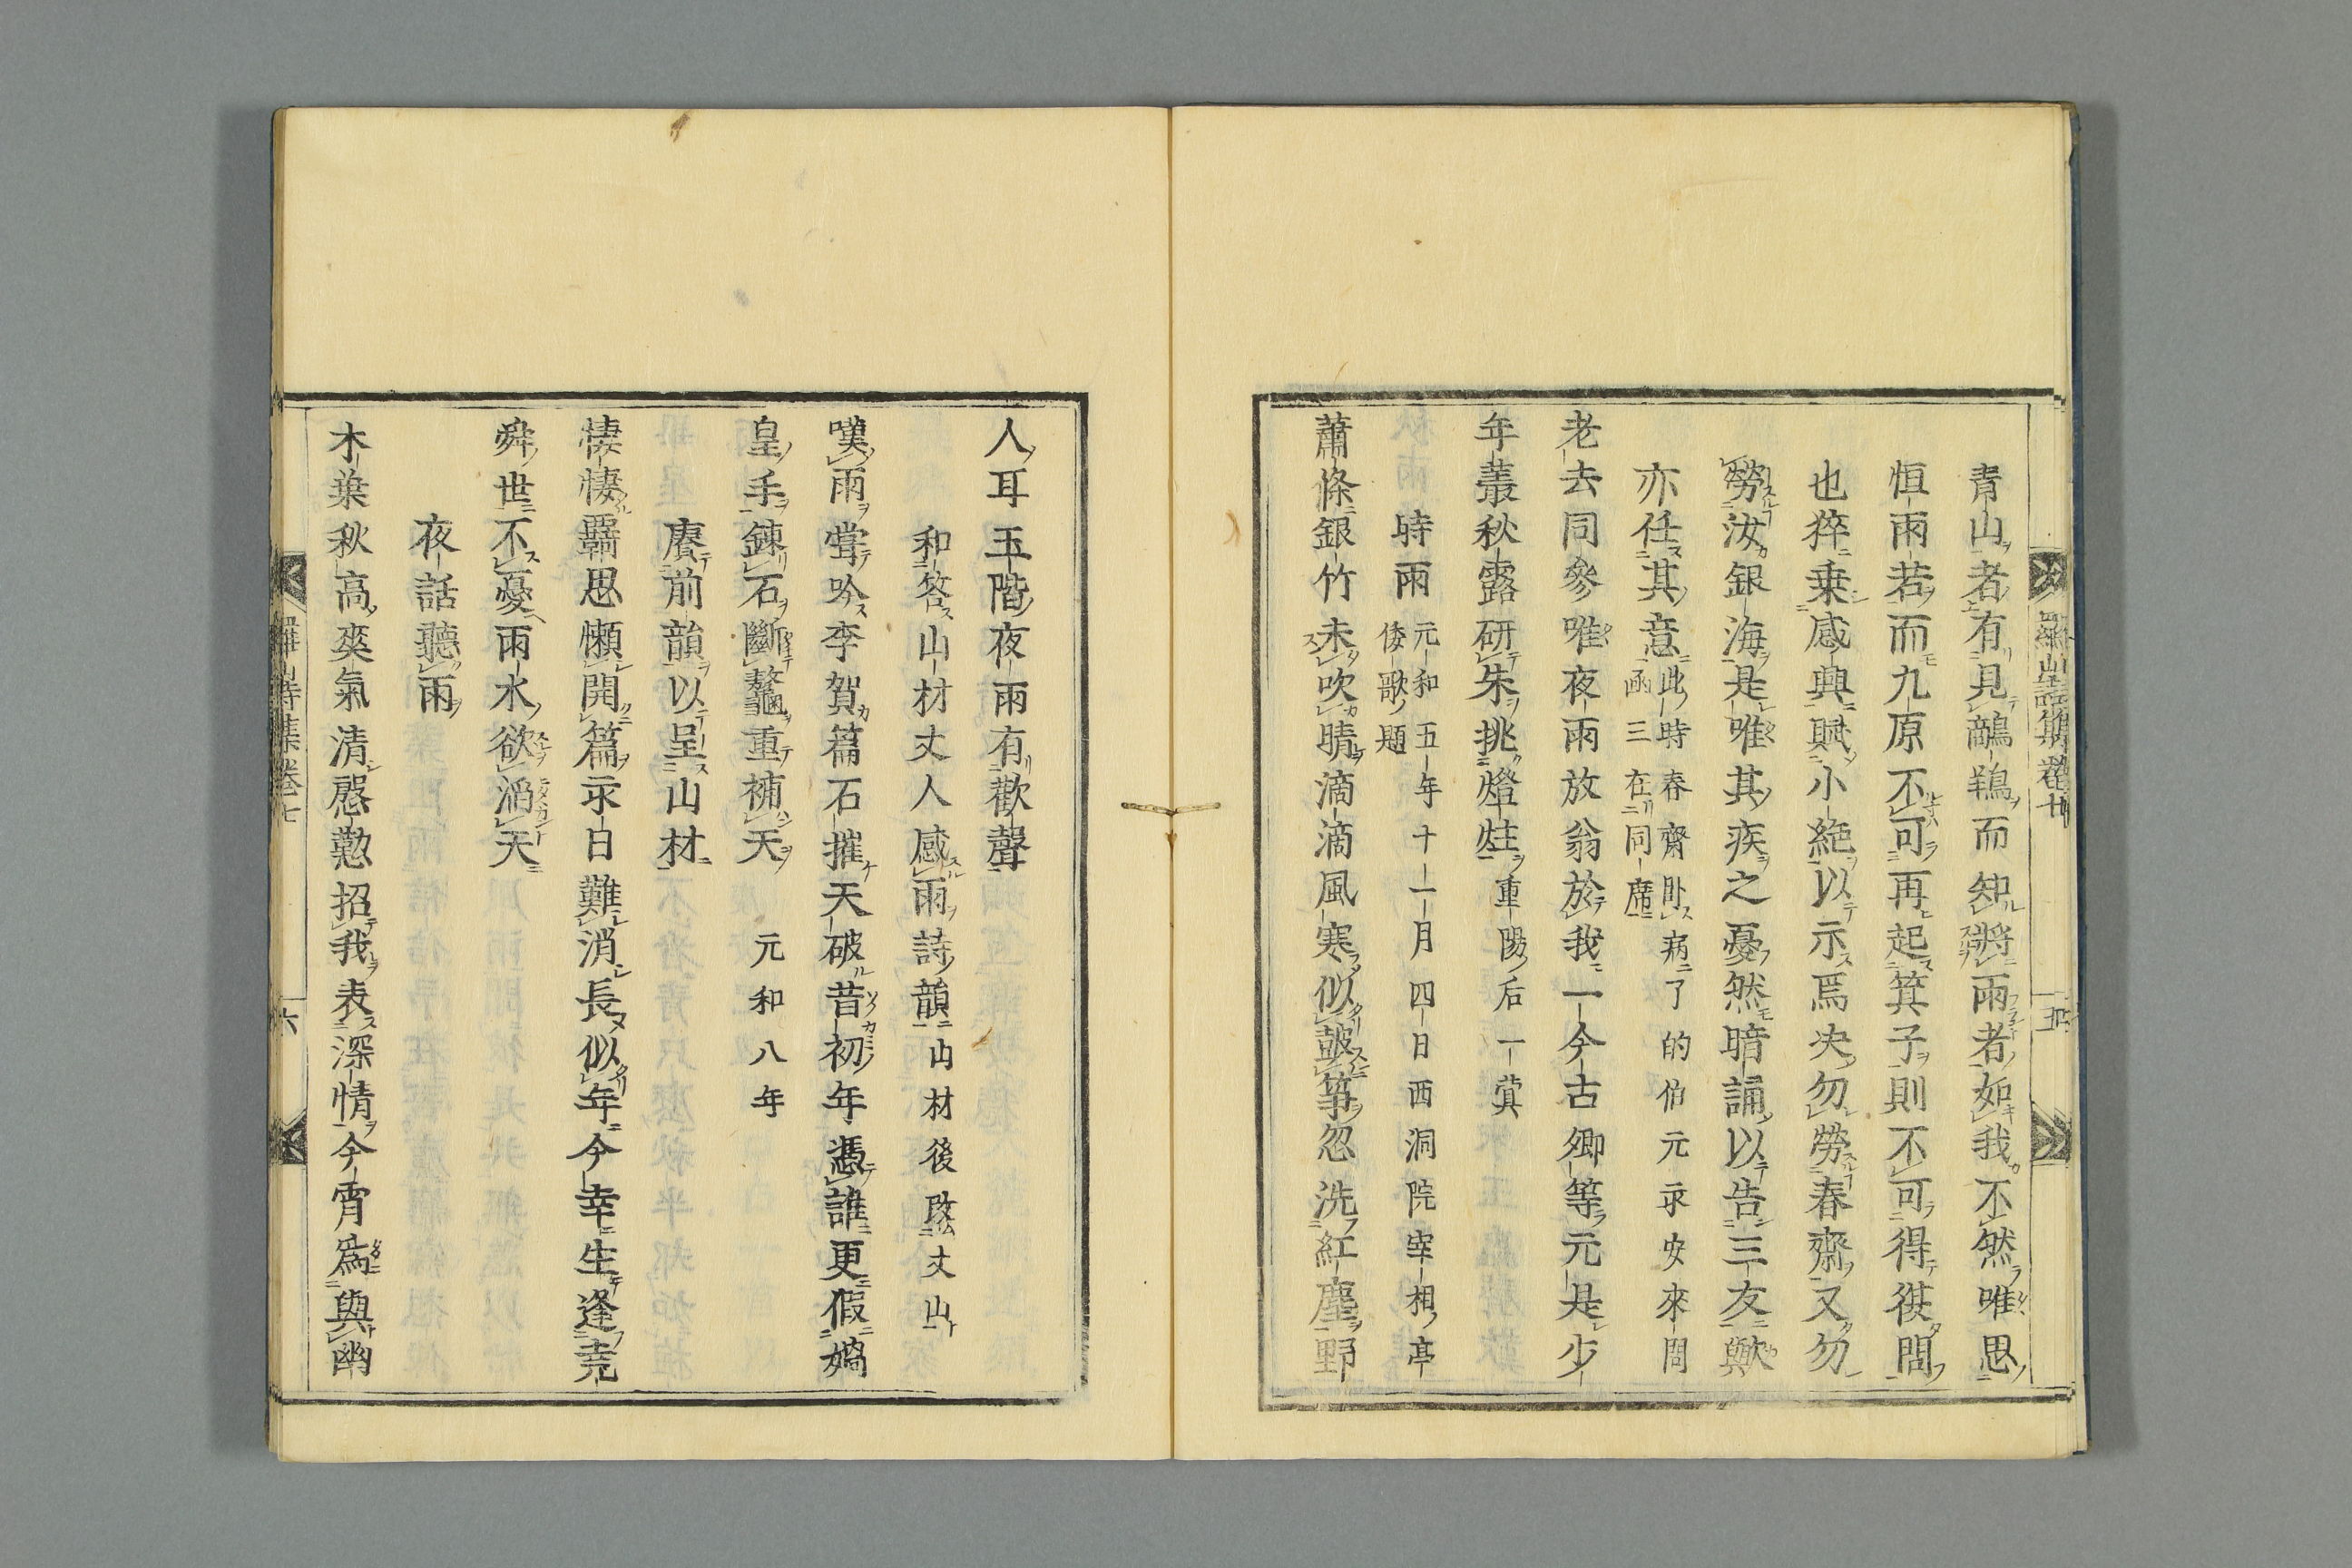 青山者有見鸸鶜而知將雨者如我不然唯思
恒雨若而九原不可再起箕子則不可得從問
也猝乗感興賦小絶以示焉决勿勞春齋又勿
勞汝銀海是唯其疾之憂然暗誦以告三友歟
亦任其意
此時春齋臥病了的伯元永安來問
函三在同席
老去同參唯夜雨放翁於我一今古卿等元是少
年叢秋露研朱挑燈炷
重陽后一蓂
時雨
元和五年十一月四日西洞院宰相亭
倭歌題
蕭條銀竹未吹晴滴滴風寒似皷箏忽洗紅塵野
人耳玉階夜雨有歡聲
和答山材丈人感雨詩韻
山材後改丈山
嘆雨嘗吟李賀篇石摧天破昔初年憑誰更假媧
皇手錬石斷鼇重補天
元和八年
賡前韻以呈山材
悽悽覊思懶開篇永日難消長似年今幸生逢堯
舜世不憂雨水欲滔天
夜話聽雨
木葉秋高爽氣清慇懃招我表深情今宵爲與幽
羅山詩集卷七
六